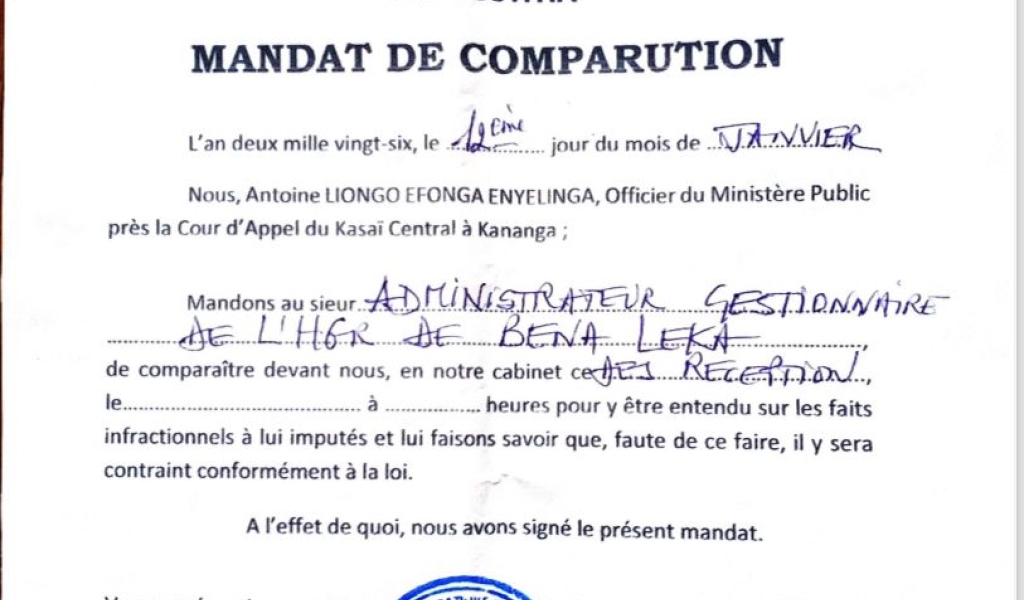 MANDAT DE COMPARUTION
L'an deux mille vingt-six, le 12ème jour du mois de JANVIER
Nous, Antoine LIONGO EFONGA ENYELINGA, Officier du Ministère Public
près la Cour d'Appel du Kasaï Central à Kananga ;
Mandons au sieur ADMINISTRATEUR GESTIONNAIRE
DE L'HGR DE BENA LEKA,
de comparaître devant nous, en notre cabinet ce DES RECEPTION,
le.......................................... à .................... heures pour y être entendu sur les faits
infractionnels à lui imputés et lui faisons savoir que, faute de ce faire, il y sera
contraint conformément à la loi.
A l'effet de quoi, nous avons signé le présent mandat.